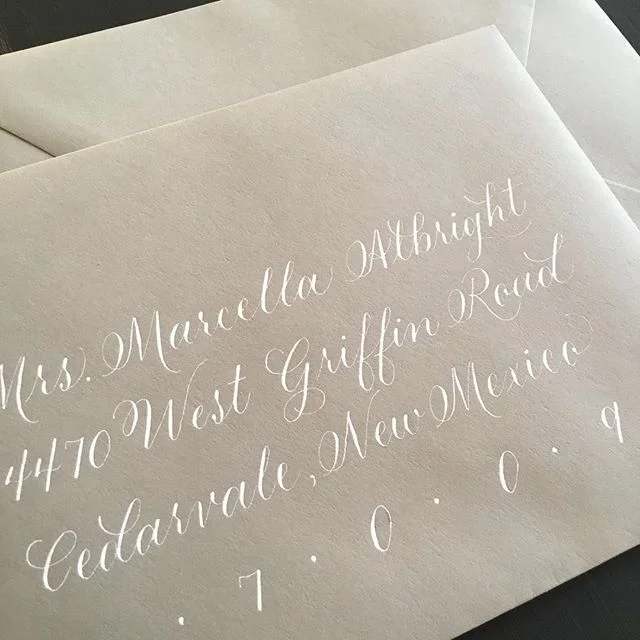 Mrs. Marcella Albright
4470 West Griffin Road
Cedarvale, New Mexico
. 7 . 0 . 0 . 9